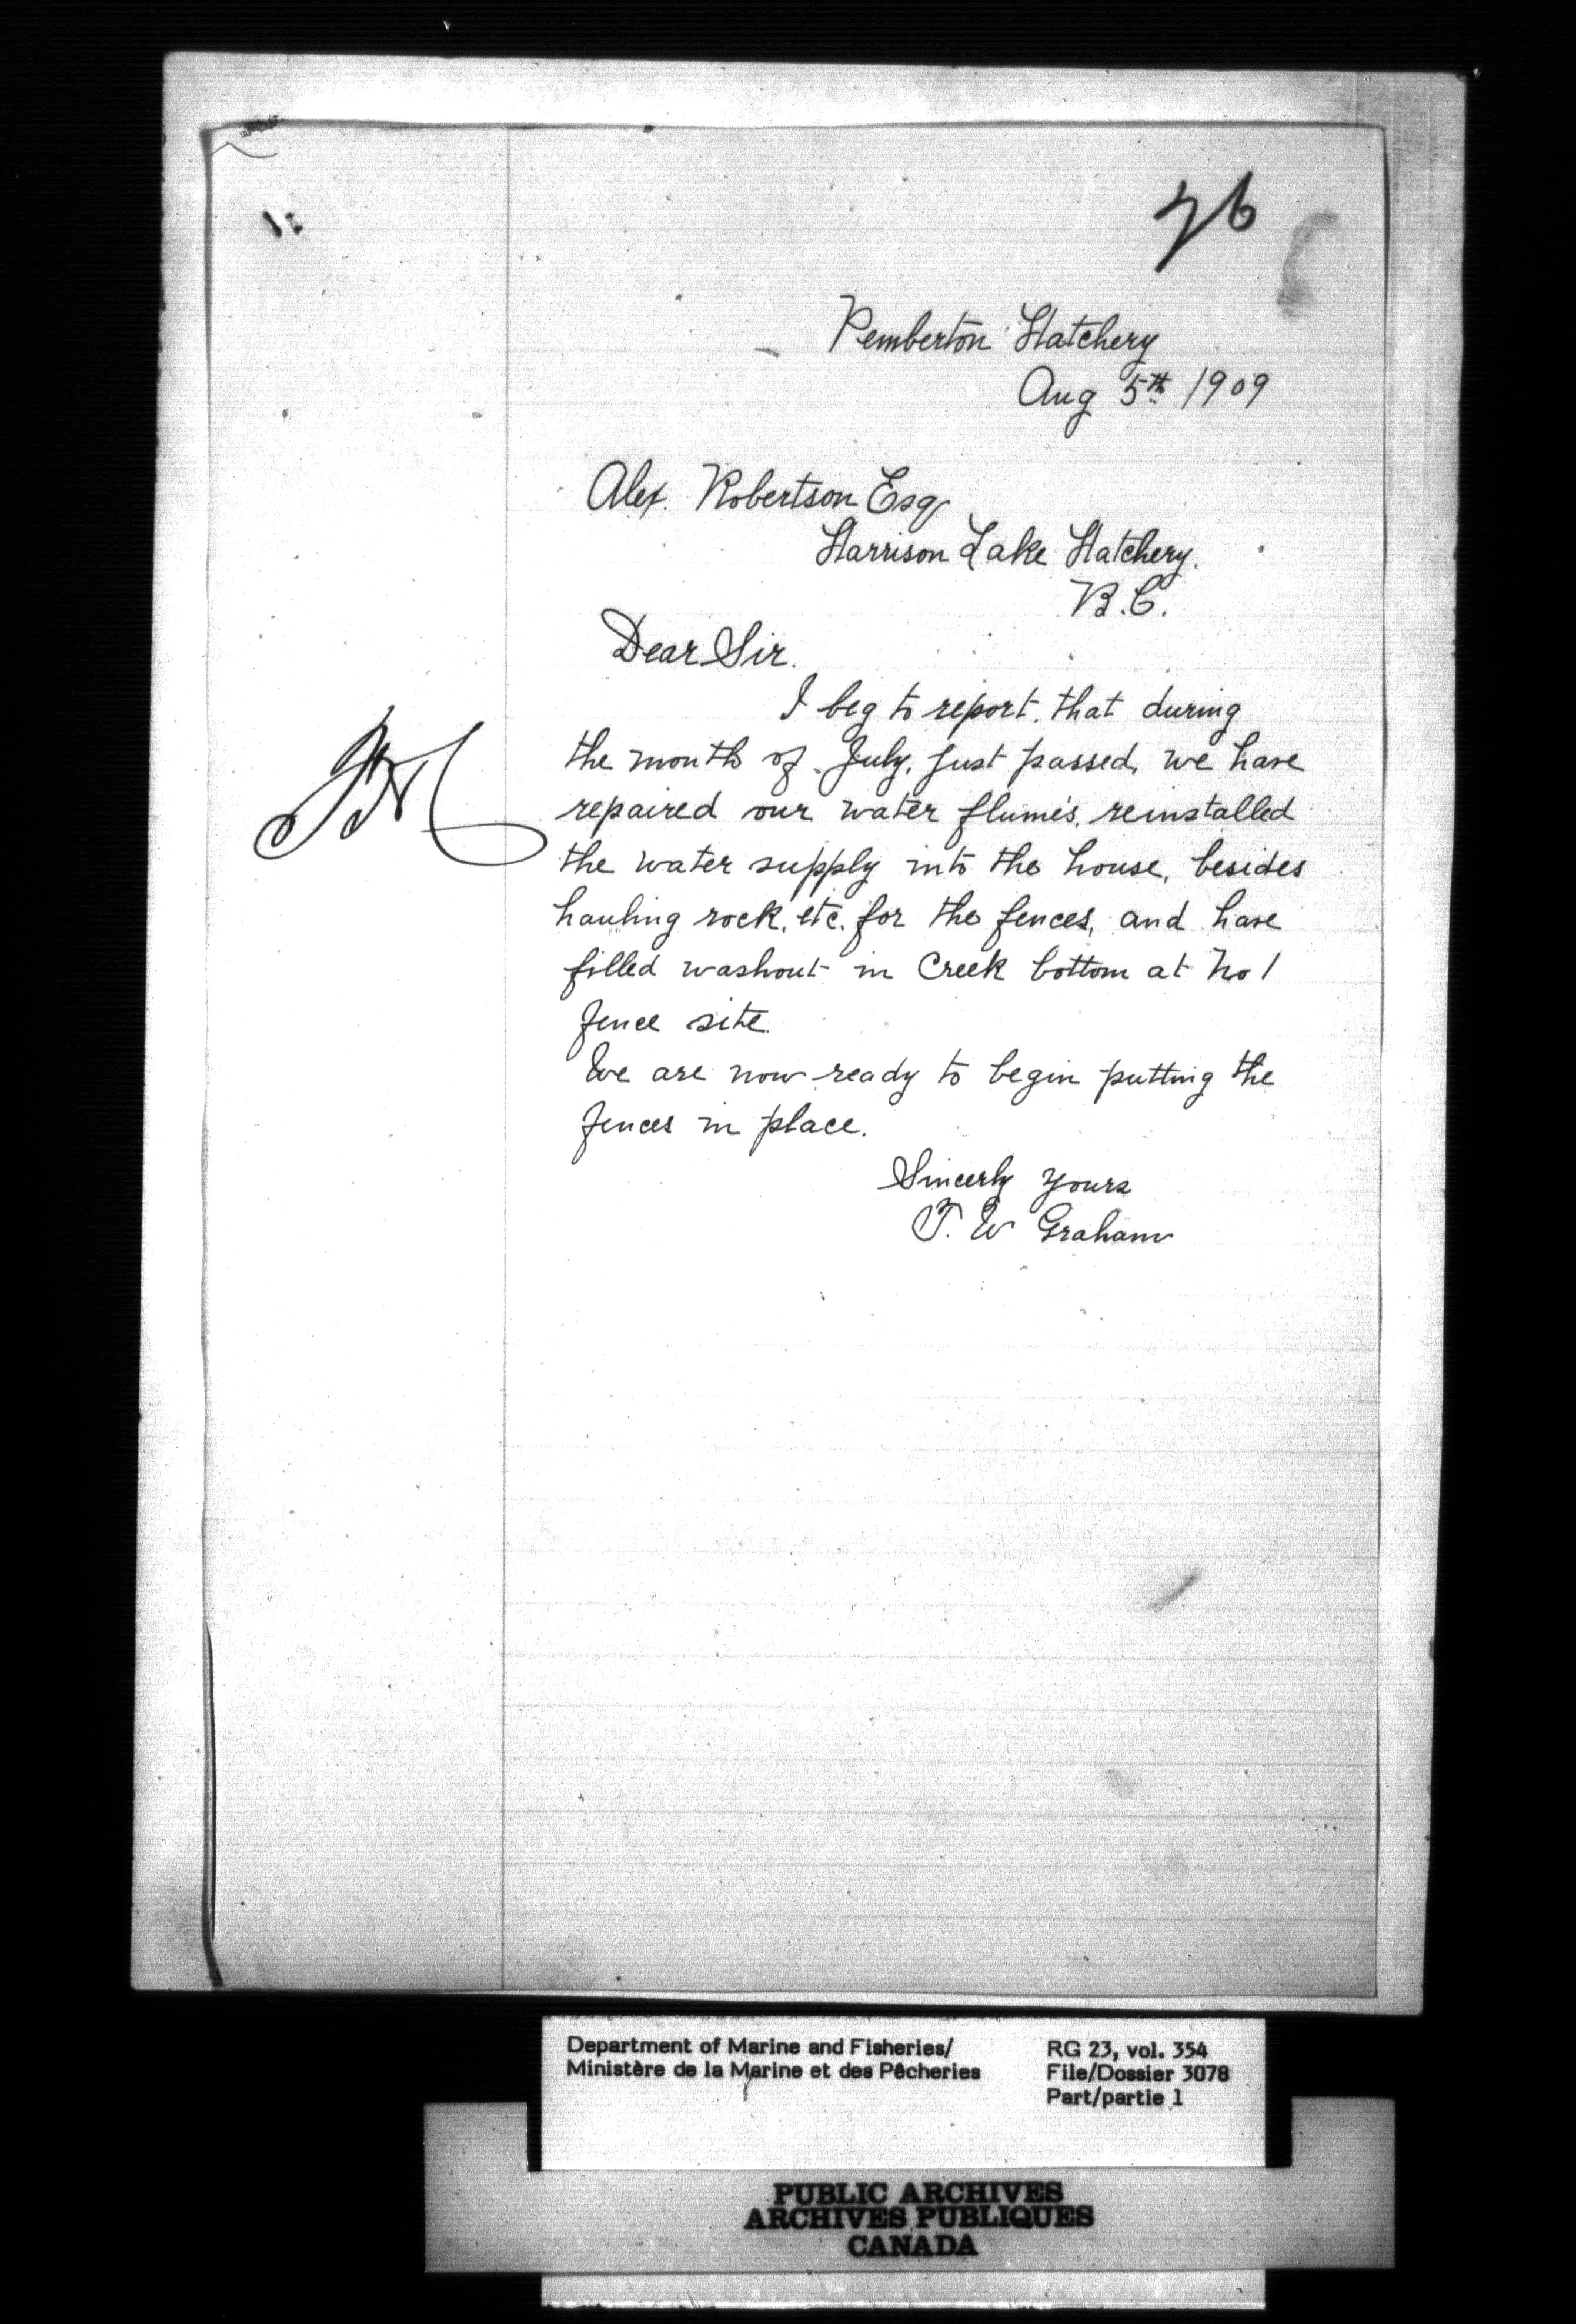 76
Pemberton Hatchery
Aug 5th 1909
Alex. Robertson Esq
Harrison Lake Hatchery.
B.C.
Dear Sir.
I beg to report. that during
the month of July, just passed, we have
repaired our water flumes, reinstalled
the water supply into the house, besides
hauling rock, etc. for the fences, and have
filled washout in Creek bottom at No 1
fence site.
We are now ready to begin putting the
fences in place.
Sincerly yours
T. W Graham
Department of Marine and Fisheries/
Ministère de la Marine et des Pêcheries
RG 23, vol. 354
File/Dossier 3078
Part/partie 1
PUBLIC ARCHIVES
ARCHIVES PUBLIQUES
CANADA